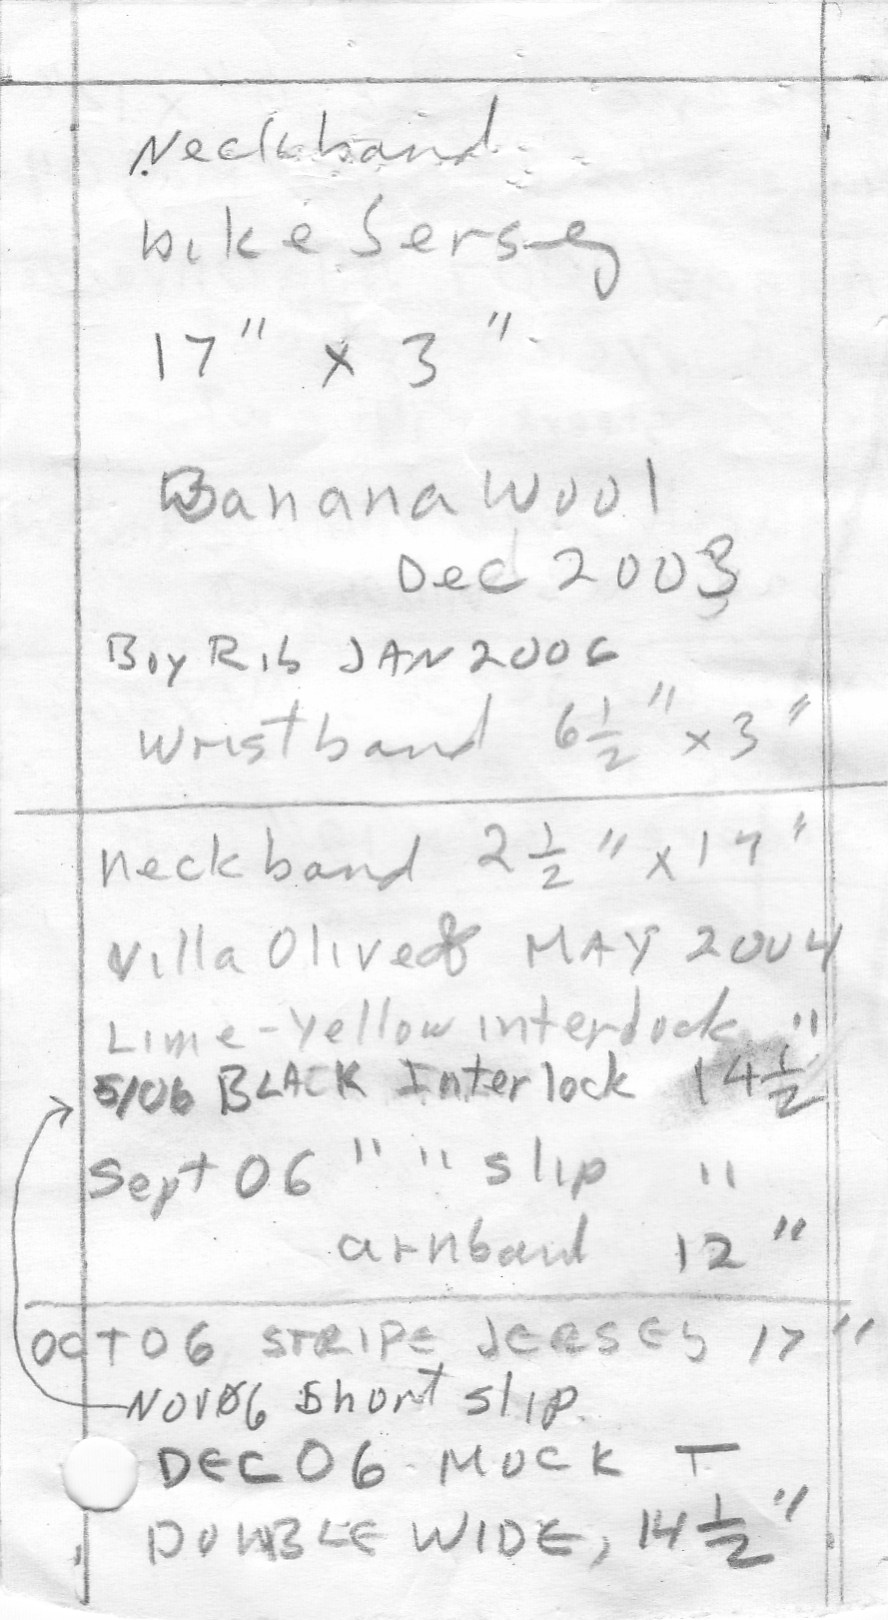 Neckband
bike Jersey
17" x 3"
Banana Wool
Dec 2003
Boy Rib JAN 2006
Wristband 6 1/2" x 3"
neckband 2 1/2" x 17"
Villa Olive MAY 2004
Lime-Yellow interlock "
5/06 BLACK Interlock 14 1/2
Sept 06 " " slip "
armband 12"
OCT 06 STRIPE JERSEY 17"
NOV 06 Short slip
DEC 06 MOCK T
DOUBLE WIDE, 14 1/2"